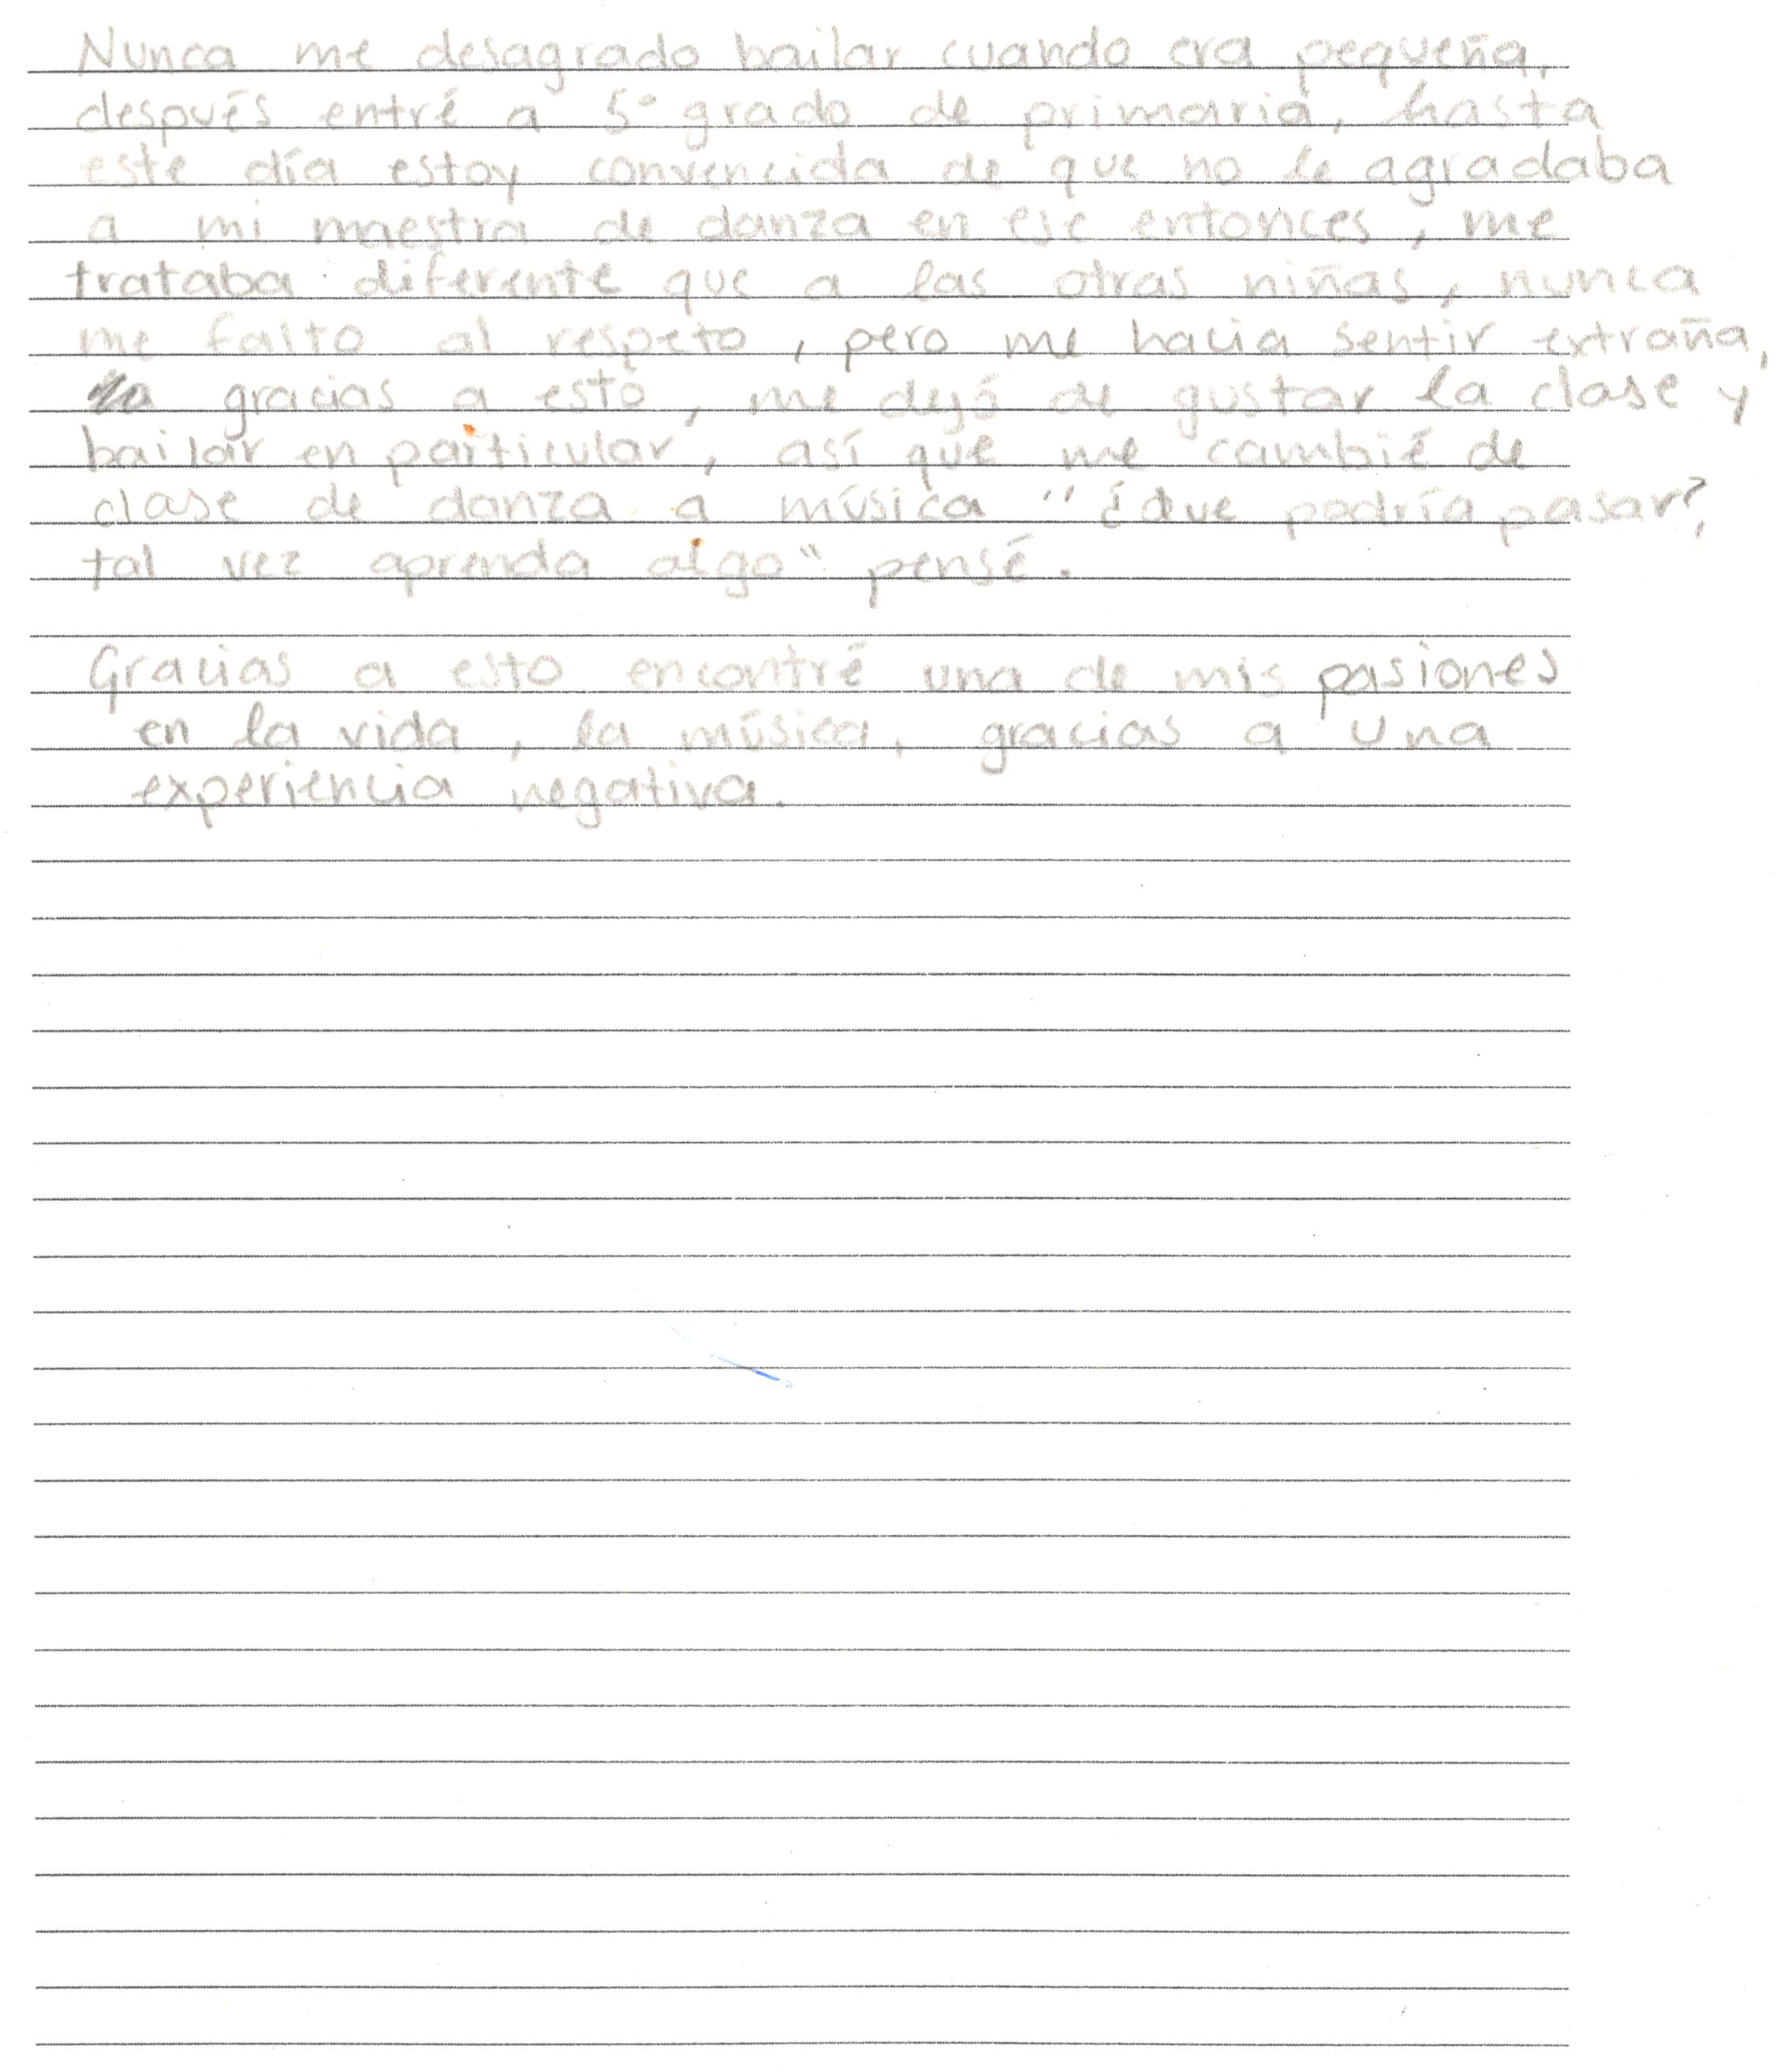 Nunca me desagrado bailar cuando era pequeña,
después entré a 5° grado de primaria, hasta
este día estoy convencida de que no le agradaba
a mi maestra de danza en ese entonces, me
trataba diferente que a las otras niñas, nunca
me falto al respeto, pero me hacia sentir extraña,
gracias a esto, me dejó de gustar la clase y
bailar en particular, así que me cambié de
clase de danza a música "¿Que podría pasar?,
tal vez aprenda algo" pensé.
Gracias a esto encontré una de mis pasiones
en la vida, la música, gracias a una
experiencia negativa.